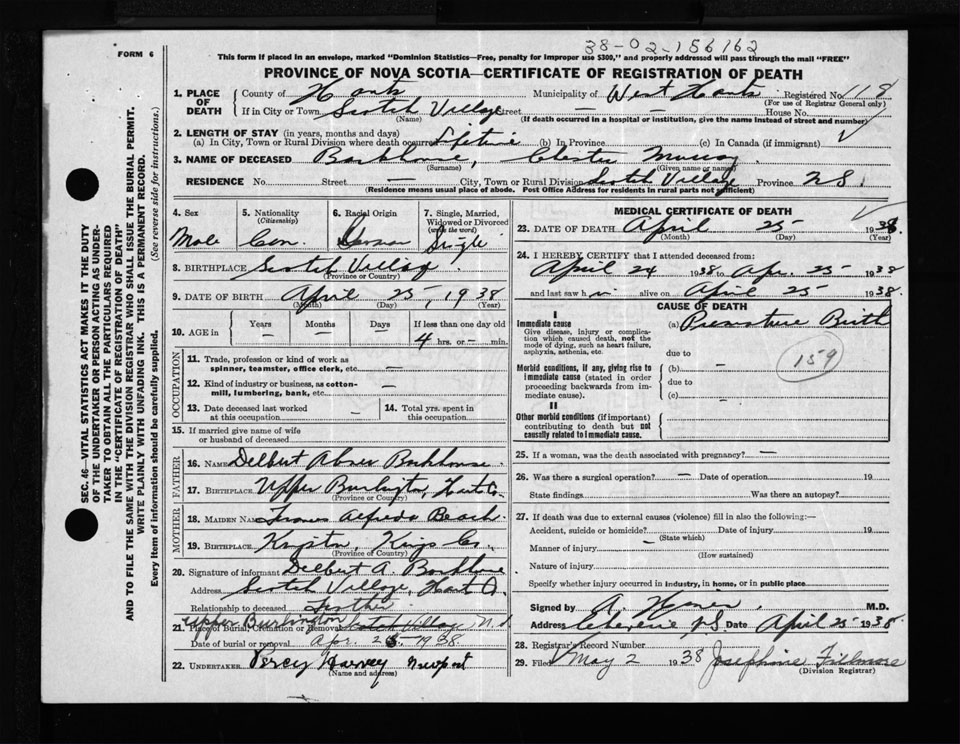 38-02-156162
FORM 6
This form if placed in an envelope, marked "Dominion Statistics—Free, penalty for improper use $300," and properly addressed will pass through the mail "FREE"
PROVINCE OF NOVA SCOTIA—CERTIFICATE OF REGISTRATION OF DEATH
1. PLACE OF DEATH County of Hants Municipality of West Hants Registered No. 118
(For use of Registrar General only)
If in City or Town Scotch Village Street — House No.
(Name) (If death occurred in a hospital or institution, give the name instead of street and number)
2. LENGTH OF STAY (in years, months and days)
(a) In City, Town or Rural Division where death occurred Lifetime (b) In Province (c) In Canada (if immigrant)
3. NAME OF DECEASED Barkhouse, Chester Murray
(Surname) (Given name or names)
RESIDENCE No. Street — City, Town or Rural Division Scotch Village Province N.S.
(Residence means usual place of abode. Post Office Address for residents in rural parts not sufficient)
4. Sex Male
5. Nationality (Citizenship) Can.
6. Racial Origin German
7. Single, Married, Widowed or Divorced (write the word) Single
8. BIRTHPLACE Scotch Village
(Province or Country)
9. DATE OF BIRTH April 25, 1938
(Month) (Day) (Year)
10. AGE in Years — Months — Days — If less than one day old 4 hrs. or — min.
OCCUPATION
11. Trade, profession or kind of work as spinner, teamster, office clerk, etc. —
12. Kind of industry or business, as cotton-mill, lumbering, bank, etc. —
13. Date deceased last worked at this occupation —
14. Total yrs. spent in this occupation
15. If married give name of wife or husband of deceased
FATHER
16. NAME Delbert Abner Barkhouse
17. BIRTHPLACE Upper Burlington, Hants Co.
(Province or Country)
MOTHER
18. MAIDEN NAME Alfreda Beach
19. BIRTHPLACE Kings Co.
(Province or Country)
20. Signature of informant Delbert A. Barkhouse
Address Scotch Village, Hants Co.
Relationship to deceased Father
Upper Burlington
21. Place of Burial, Cremation or Removal Scotch Village N.S.
Date of burial or removal Apr. 26 - 1938.
22. UNDERTAKER Percy Harvey Newport
(Name and address)
MEDICAL CERTIFICATE OF DEATH
23. DATE OF DEATH April 25 1938
(Month) (Day) (Year)
24. I HEREBY CERTIFY that I attended deceased from:
April 24 1938 to Apr. 25 1938
and last saw h m alive on April 25 1938.
CAUSE OF DEATH
I
Immediate cause
Give disease, injury or complication which caused death, not the mode of dying, such as heart failure, asphyxia, asthenia, etc.
(a) Premature Birth
due to
Morbid conditions, if any, giving rise to immediate cause (stated in order proceeding backwards from immediate cause).
(b) —
due to
(c) —
159
II
Other morbid conditions (if important) contributing to death but not causally related to immediate cause.
25. If a woman, was the death associated with pregnancy? —
26. Was there a surgical operation? — Date of operation 19
State findings Was there an autopsy?
27. If death was due to external causes (violence) fill in also the following:—
Accident, suicide or homicide? Date of injury 19
(State which)
Manner of injury —
(How sustained)
Nature of injury
Specify whether injury occurred in industry, in home, or in public place
Signed by M.D.
Address Cheverie N.S. Date April 25 1938.
28. Registrar's Record Number
29. Filed May 2 1938 Josephine Fillmore
(Division Registrar)
SEC. 46—VITAL STATISTICS ACT MAKES IT THE DUTY
OF THE UNDERTAKER OR PERSON ACTING AS UNDER-
TAKER TO OBTAIN ALL THE PARTICULARS REQUIRED
IN THE "CERTIFICATE OF REGISTRATION OF DEATH"
AND TO FILE THE SAME WITH THE DIVISION REGISTRAR WHO SHALL ISSUE THE BURIAL PERMIT.
WRITE PLAINLY WITH UNFADING INK. THIS IS A PERMANENT RECORD.
Every item of information should be carefully supplied. (See reverse side for instructions.)